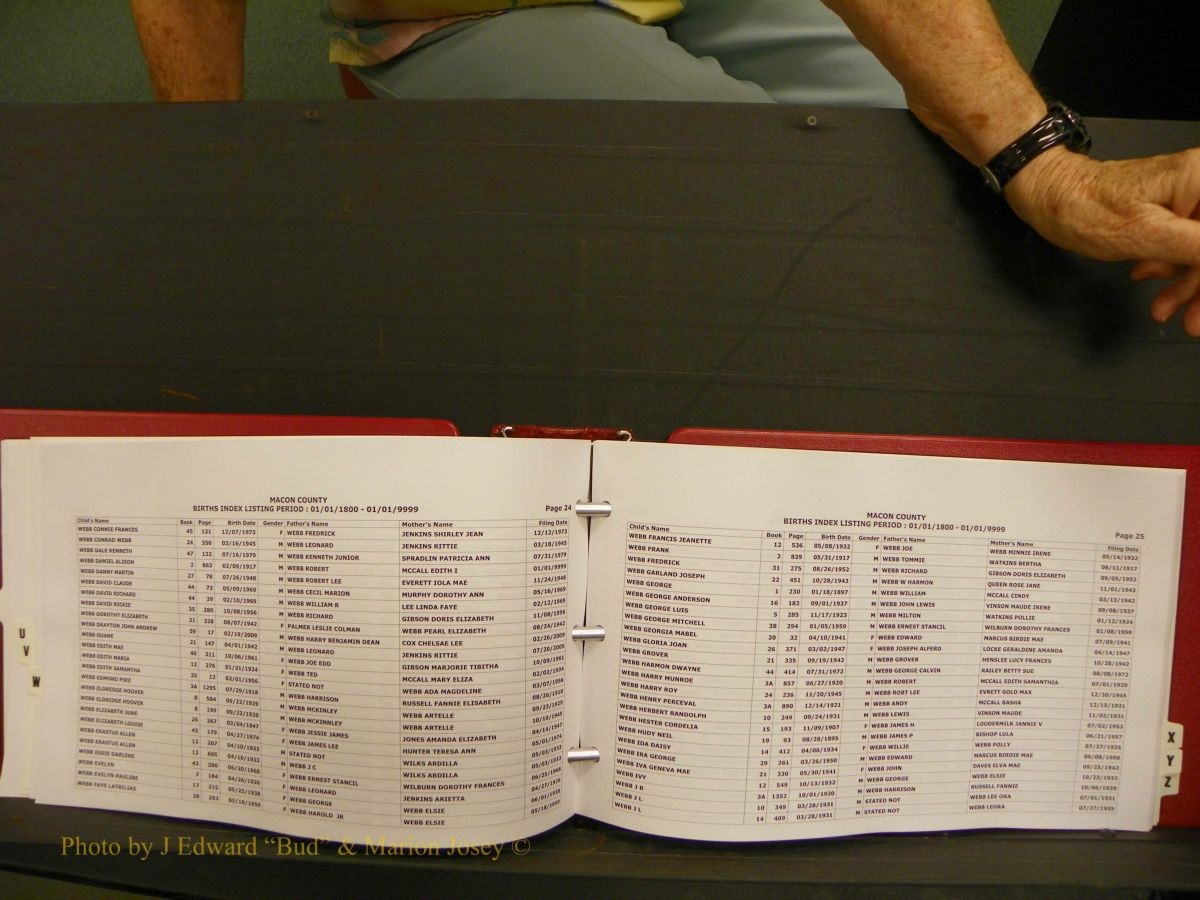 MACON COUNTY
BIRTHS INDEX LISTING PERIOD : 01/01/1800 - 01/01/9999
Page 24
Child's Name Book Page Birth Date Gender Father's Name Mother's Name Filing Date
WEBB CONNIE FRANCES 45 131 12/07/1973 F WEBB FREDRICK JENKINS SHIRLEY JEAN 12/12/1973
WEBB CONRAD WEBB 24 350 03/16/1945 M WEBB LEONARD JENKINS RITTIE 03/18/1945
WEBB DALE KENNETH 47 132 07/16/1979 M WEBB KENNETH JUNIOR SPRADLIN PATRICIA ANN 07/31/1979
WEBB DANIEL ALISON 2 863 02/09/1917 M WEBB ROBERT MCCALL EDITH I 01/01/9999
WEBB DANNY MARTIN 27 78 07/26/1948 M WEBB ROBERT LEE EVERETT IOLA MAE 11/24/1948
WEBB DAVID CLAUDE 44 73 05/09/1969 M WEBB CECIL MARION MURPHY DOROTHY ANN 05/16/1969
WEBB DAVID RICHARD 44 39 02/10/1969 M WEBB WILLIAM R LEE LINDA FAYE 02/12/1969
WEBB DAVID RICKIE 35 280 10/08/1956 M WEBB RICHARD GIBSON DORIS ELIZABETH 11/08/1956
WEBB DOROTHY ELIZABETH 21 328 08/07/1942 F PALMER LESLIE COLMAN WEBB PEARL ELIZABETH 08/24/1942
WEBB DRAYTON JOHN ANDREW 59 17 02/15/2009 M WEBB HARRY BENJAMIN DEAN COX CHELSAE LEE 02/26/2009
WEBB DUANE 21 147 04/01/1942 M WEBB LEONARD JENKINS RITTIE
WEBB EDITH MAE 40 211 10/06/1961 F WEBB JOE EDD GIBSON MARJORIE TIBITHA 10/09/1961
WEBB EDITH MARIA 13 276 01/31/1934 F WEBB TED MCCALL MARY ELIZA
WEBB EDITH SAMANTHA 35 12 02/01/1956 F STATED NOT WEBB ADA MAGDELINE
WEBB EDMOND PIKE 2A 1295 07/29/1918 M WEBB HARRISON RUSSELL FANNIE ELISABETH 08/26/1918
WEBB ELDREDGE HOOVER 8 584 09/22/1929 M WEBB MCKINLEY WEBB ARTELLE 09/23/1929
WEBB ELDREDGE HOOVER 8 199 09/22/1929 M WEBB MCKINNLEY WEBB ARTELLE
WEBB ELIZABETH JUNE 26 367 03/04/1947 F WEBB JESSIE JAMES JONES AMANDA ELIZABETH
WEBB ELIZABETH LOUISE 45 179 04/27/1974 F WEBB JAMES LEE HUNTER TERESA ANN
WEBB ERASTUS ALLEN 12 267 04/10/1933 M STATED NOT WILKS ARDILLA
WEBB ERASTUS ALLEN 12 605 04/10/1933 M WEBB J C WILKS ARDILLA
WEBB ESSIE DARLENE 43 390 06/20/1968 F WEBB ERNEST STANCIL WILBURN DOROTHY FRANCES
WEBB EVELYN 7 184 04/26/1926 F WEBB LEONARD JENKINS ARIETTA
WEBB EVELYN PAULINE 17 215 05/25/1938 F WEBB GEORGE WEBB ELSIE
WEBB FAYE 38 293 F WEBB HAROLD JR WEBB ELSIE
MACON COUNTY
BIRTHS INDEX LISTING PERIOD : 01/01/1800 - 01/01/9999
Page 25
Child's Name Book Page Birth Date Gender Father's Name Mother's Name Filing Date
WEBB FRANCES JEANETTE 12 536 05/08/1932 F WEBB JOE WEBB MINNIE IRENE 05/14/1932
WEBB FRANK 2 839 05/31/1917 M WEBB TOMMIE WATKINS BERTHA 06/11/1917
WEBB FREDRICK 31 275 08/26/1952 M WEBB RICHARD GIBSON DORIS ELIZABETH 09/05/1952
WEBB GARLAND JOSEPH 22 451 10/28/1943 M WEBB W HARMON QUEEN ROSE JANE 11/01/1943
WEBB GEORGE 1 230 01/18/1897 M WEBB WILLIAM MCCALL CINDY 03/13/1942
WEBB GEORGE ANDERSON 16 182 09/01/1937 M WEBB JOHN LEWIS VINSON MAUDE IRENE 09/08/1937
WEBB GEORGE LUIS 5 285 11/17/1923 M WEBB MILTON WATKINS POLLIE 01/12/1924
WEBB GEORGE MITCHELL 38 294 01/05/1959 M WEBB ERNEST STANCIL WILBURN DOROTHY FRANCES 01/08/1959
WEBB GEORGIA MABEL 20 32 04/10/1941 F WEBB EDWARD MARCUS BIRDIE MAE 07/09/1941
WEBB GLORIA JOAN 26 371 03/02/1947 F WEBB JOSEPH ALFERD LOCKE GERALDINE AMANDA 04/14/1947
WEBB GROVER 21 335 09/19/1942 M WEBB GROVER HENSLEE LUCY FRANCES 10/28/1942
WEBB HARMON DWAYNE 44 414 07/31/1972 M WEBB GEORGE CALVIN RAILEY BETTY SUE 08/08/1972
WEBB HARRY MUNROE 3A 857 06/27/1920 M WEBB ROBERT MCCALL EDITH SAMANTHIA 07/01/1920
WEBB HARRY ROY 24 236 11/20/1945 M WEBB ROBT LEE EVRETT GOLD MAX 12/20/1945
WEBB HENRY PERCEVAL 3A 890 12/14/1921 M WEBB ANDY MCCALL BASHA 12/15/1921
WEBB HERBERT RANDOLPH 10 249 09/24/1931 M WEBB LEWIS VINSON MAUDE 11/02/1931
WEBB HESTER CORDELIA 15 193 11/09/1907 F WEBB JAMES H LOUDERMILK JANNIE V
WEBB HUDY NEIL 19 93 08/28/1895 M WEBB JAMES P BISHOP LULA
WEBB IDA DAISY 14 412 04/06/1934 F WEBB WILLIE WEBB POLLY 07/27/1935
WEBB IRA GEORGE 29 261 03/26/1950 M WEBB EDWARD MARCUS BIRDIE MAE 09/08/1950
WEBB IVA GENEVA MAE 21 330 05/30/1941 F WEBB JOHN DAVES ELVA MAE 09/25/1942
WEBB IVY 12 549 10/13/1932 M WEBB GEORGE WEBB ELSIE 10/23/1932
WEBB J B 3A 1352 10/01/1920 M WEBB HARRISON RUSSELL FANNIE 10/06/1920
WEBB J L 10 349 03/28/1931 M STATED NOT WEBB LEE ORA 07/01/1931
WEBB J L 14 409 03/28/1931 M STATED NOT WEBB LEORA 07/27/1935
U
V
W
X
Y
Z
Photo by J Edward “Bud” & Marion Josey ©